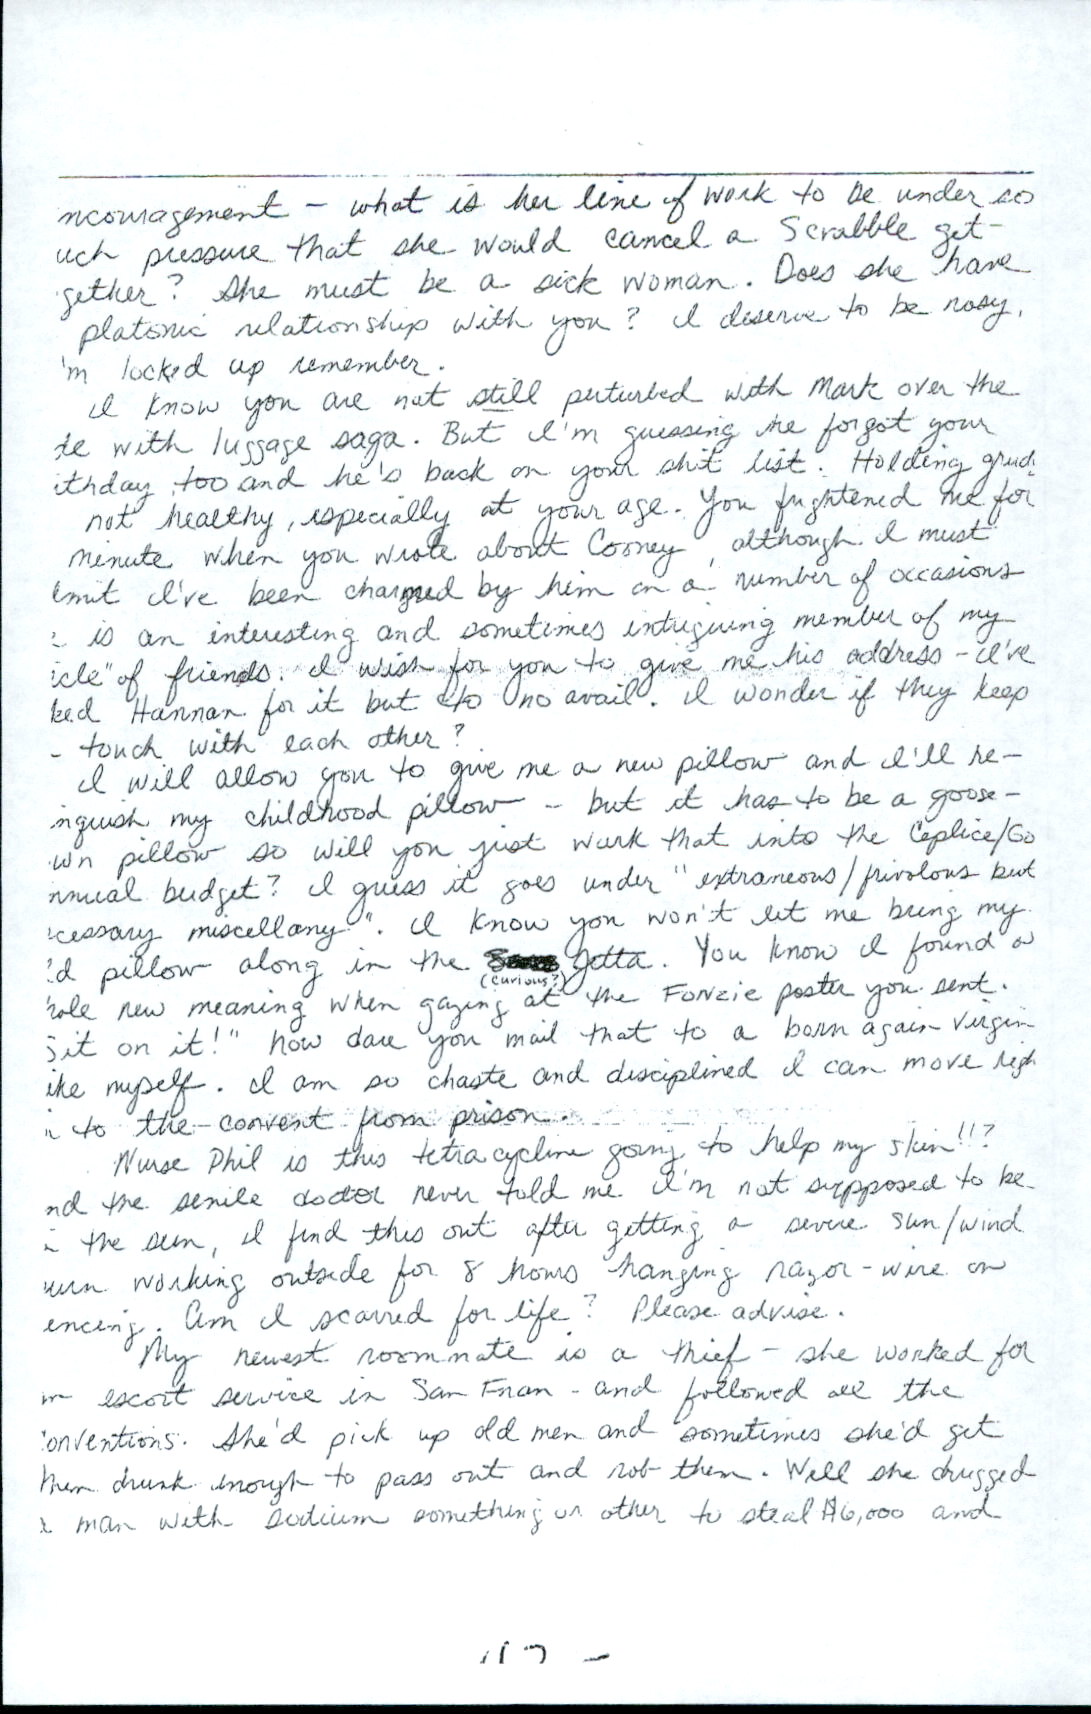 ncouragement - what is her line of work to be under so
uch pressure that she would cancel a Scrabble get-
gether? She must be a sick woman. Does she have
platonic relationship with you? I deserve to be nosy,
'm locked up remember.
I know you are not still perturbed with Mark over the
te with luggage saga. But I'm guessing he forgot your
ithday, too and he's back on your shit list. Holding grud
not healthy, especially at your age. You frightened me for
minute when you wrote about Cosney, although I must
dmit I've been charmed by him on a number of occasions
is an interesting and sometimes intriguing member of my
icle" of friends. I wish for you to give me his address - I've
ked Hannan for it but to no avail. I wonder if they keep
- touch with each other?
I will allow you to give me a new pillow and I'll re-
nquish my childhood pillow - but it has to be a goose-
wn pillow so will you just work that into the Ceplice/Go
nnual budget? I guess it goes under "extraneous/frivolous but
cessary miscellany". I know you won't let me bring my
ld pillow along in the Jetta. You know I found a
(curious?)
hole new meaning when gazing at the Fonzie poster you sent.
Sit on it!" how dare you mail that to a born again virgin
ike myself. I am so chaste and disciplined I can move righ
n to the convent from prison.
Nurse Phil is this tetracycline going to help my skin!!?
nd the senile doctor never told me I'm not supposed to be
n the sun, I find this out after getting a severe sun/wind
urn working outside for 8 hours hanging razor-wire on
encing. Am I scarred for life? Please advise.
My newest roommate is a thief - she worked for
n escort service in San Fran - and followed all the
onventions. She'd pick up old men and sometimes she'd get
them drunk enough to pass out and rob them. Well she drugged
man with sodium something or other to steal $16,000 and
117 -